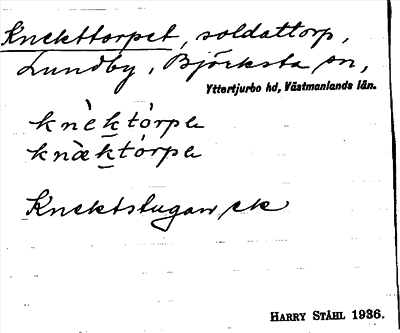 Knekttorpet, soldattorp,
Lundby, Björksta sn,
Yttertjurbo hd, Västmanlands län.
knèktórpe
knæ̀którpe
Knektstugan, ek
HARRY STÅHL 1936.